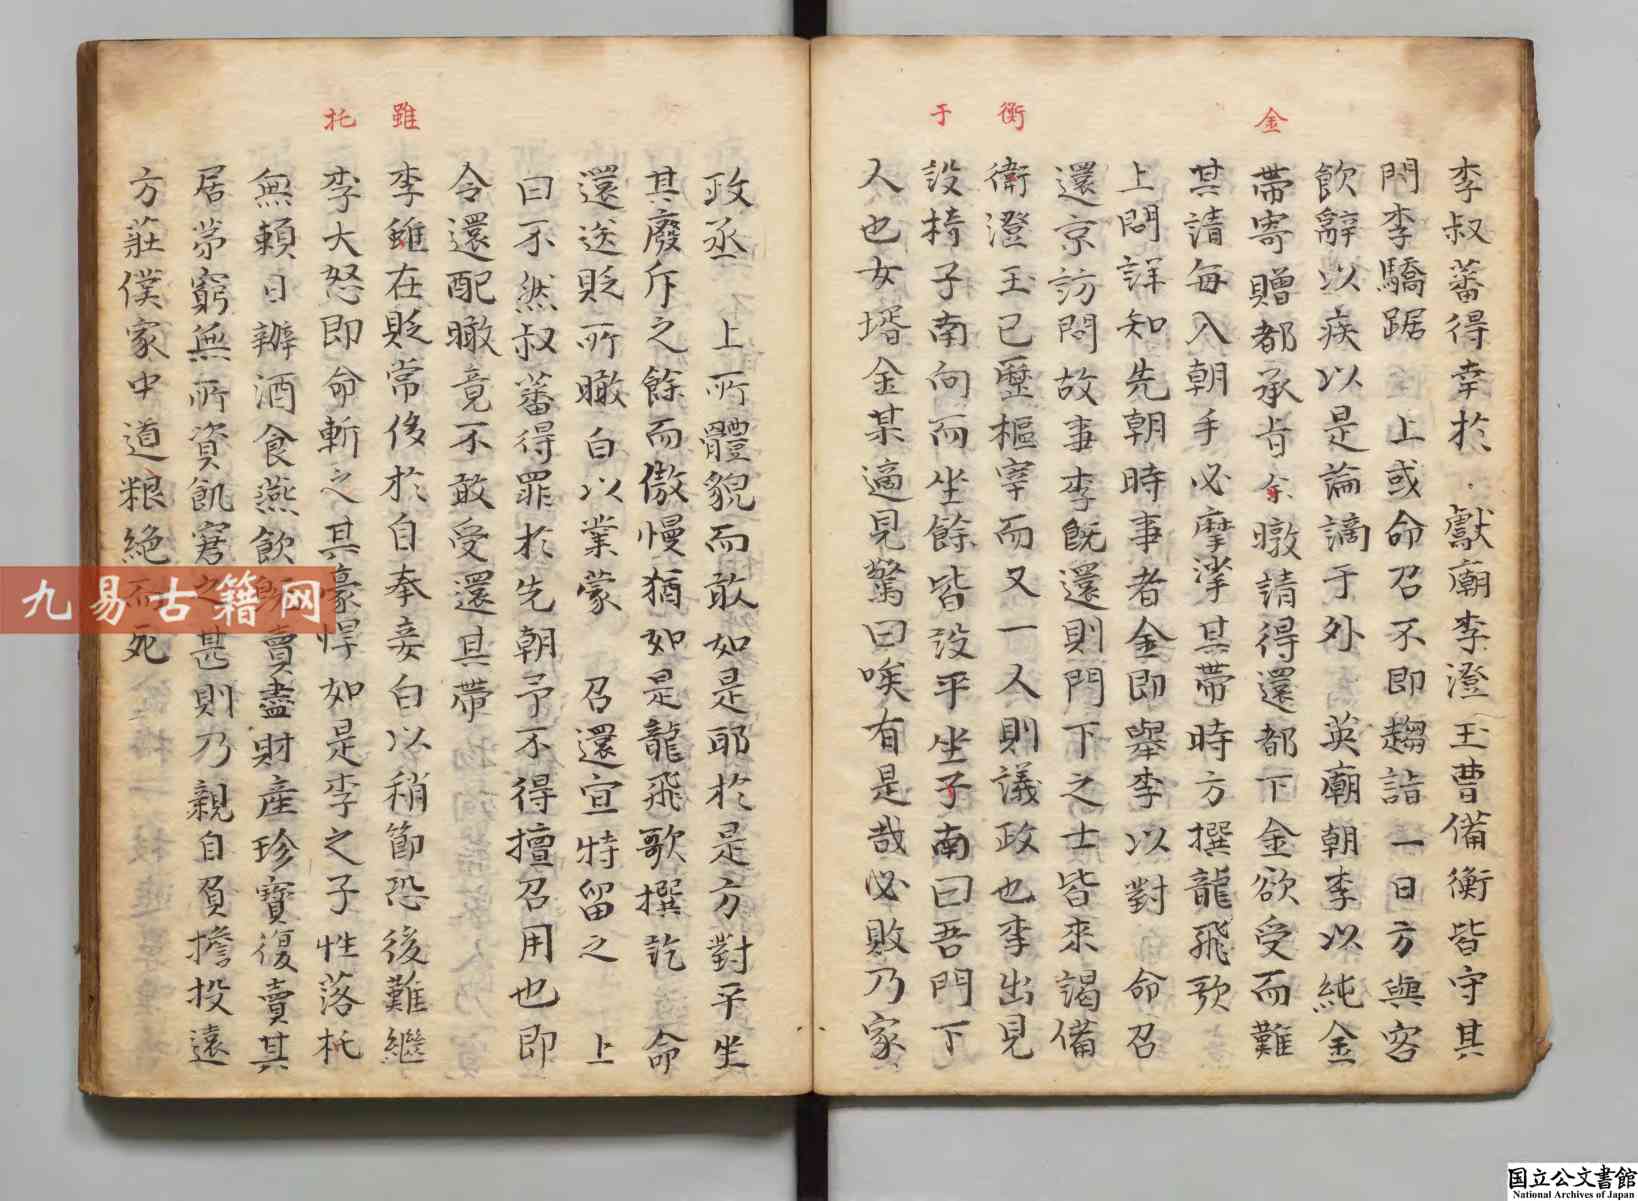 金
衡
于
李叔蕃得幸於 獻廟李澄玉曹備衡皆守其
門李驕踞 上或命召不即趨詣一日方與客
飲辭以疾以是論謫于外 英廟朝李以純金
帶寄贈都承旨余暾請得還都下金欲受而難
其請每入朝手必摩挲其帶時方撰龍飛歌
上問詳知先朝時事者金即舉李以對 命召
還京訪問故事李既還則門下之士皆來謁備
衛澄玉已歷樞宰而又一人則議政也李出見
設椅子南向而坐餘皆設平坐子南曰吾門下
人也女壻金某適見驚曰唉有是哉必敗乃家
雖
托
政丞 上所體貌而敢如是耶於是方對平坐
其廢斥之餘而傲慢猶如是龍飛歌撰訖 命
還送貶所暾白以業蒙 召還宣特留之 上
曰不然叔蕃得罪於先朝予不得擅召用也即
令還配暾竟不敢受還其帶
李雖在貶常侈於自奉妾白以稍節恐後難繼
李大怒即命斬之其豪悍如是李之子性落杔
無賴日辦酒食燕飲 賣盡財產珍寶復賣其
居第窮無所資飢窘之甚則乃親自負擔投遠
方莊僕家中道粮絕而死
九易古籍网
国立公文書館
National Archives of Japan